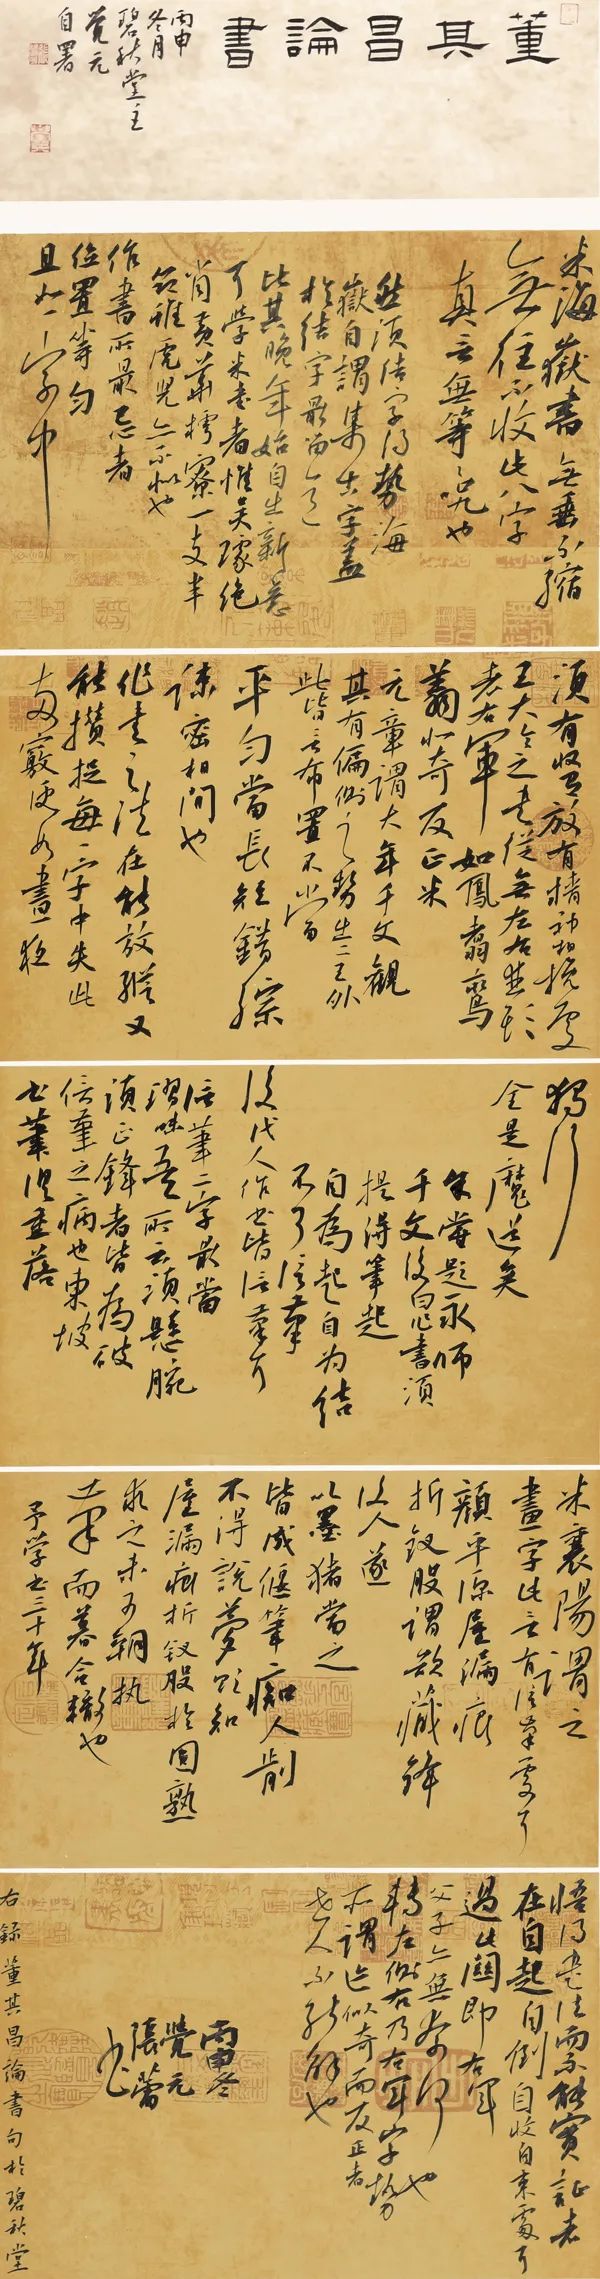 董其昌論書
丙申
冬月
碧秋堂主
覺元
自署
米海嶽書無垂不縮
無往不收此八字
真言無等等咒也
然須結字得勢海
嶽自謂集古字蓋
於結字最留意
比其晚年始自出新意
耳學米書者惟吳琚絕
肖黃華樗寮一支半
節雖虎兒亦不似也
作書所最忌者
位置等勻
且如一字中
須有收有放有精神相挽處
王大令之書從無左右並頭
者右軍如鳳翥鸞
翥似奇反正米
元章謂大年千文觀
其有偏側之勢出二王外
此皆言布置不當
平勻當長短錯綜
疎密相間也
作書之法在能放縱又
能攢捉每一字中失此
兩竅便如晝夜
獨行
全是魔道矣
余嘗題永師
千文後曰書須
提得筆起
自為起自為結
不可信筆
後代人作書皆信筆耳
信筆二字最當
玩味吾所云須懸腕
須正鋒者皆為破
信筆之病也東坡
書筆俱重落
米襄陽謂之
畫字此言有信筆處耳
顏平原屋漏痕
折釵股謂欲藏鋒
後人遂
以墨豬當之
皆成偃筆癡人前
不得說夢欲知
屋漏痕折釵股於圓熟
求之未可朝執
筆而暮合轍也
予學書三十年
悟得書法而不能實證者
在自起自倒自收自束處耳
過此關即右軍
父子亦無奈何也
轉左側右乃右軍字勢
所謂跡似奇而反正者
世人不能解也
丙申冬
覺元
張蕾
書
右錄董其昌論書句於碧秋堂